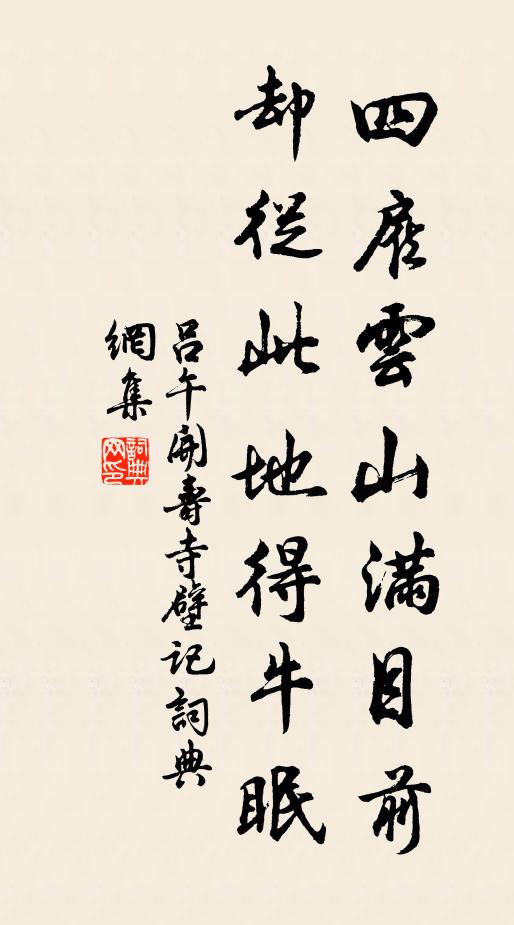 四履雲山滿目前
却從此地得牛眠
吕午開壽寺壁記詞典
網集
詞典網印